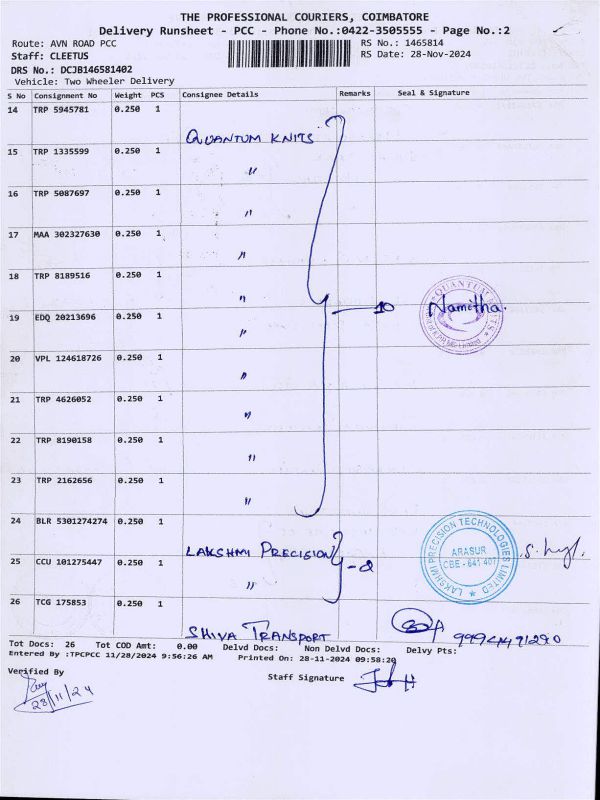 THE PROFESSIONAL COURIERS, COIMBATORE
Delivery Runsheet - PCC - Phone No.:0422-3505555 - Page No.:2
Route: AVN ROAD PCC RS No.: 1465814
Staff: CLEETUS RS Date: 28-Nov-2024
DRS No.: DCJB146581402
Vehicle: Two Wheeler Delivery
S No Consignment No Weight PCS Consignee Details Remarks Seal & Signature
14 TRP 5945781 0.250 1
QUANTUM KNITS
15 TRP 1335599 0.250 1
"
16 TRP 5087697 0.250 1
"
17 MAA 302327630 0.250 1
"
18 TRP 8189516 0.250 1
"
19 EDQ 20213696 0.250 1
10 Namitha.
QUANTUM KNITS
"
20 VPL 124618726 0.250 1
"
21 TRP 4626052 0.250 1
"
22 TRP 8190158 0.250 1
"
23 TRP 2162656 0.250 1
"
24 BLR 5301274274 0.250 1
LAKSHMI PRECISION - 2
LAKSHMI PRECISION TECHNOLOGIES LIMITED
ARASUR
CBE - 641 407
25 CCU 101275447 0.250 1
"
26 TCG 175853 0.250 1
SHIVA TRANSPORT
Tot Docs: 26 Tot COD Amt: 0.00 Delvd Docs: Non Delvd Docs: Delvy Pts:
Entered By :TPCPCC 11/28/2024 9:56:26 AM Printed On: 28-11-2024 09:58:20
Verified By
Staff Signature
28/11/24